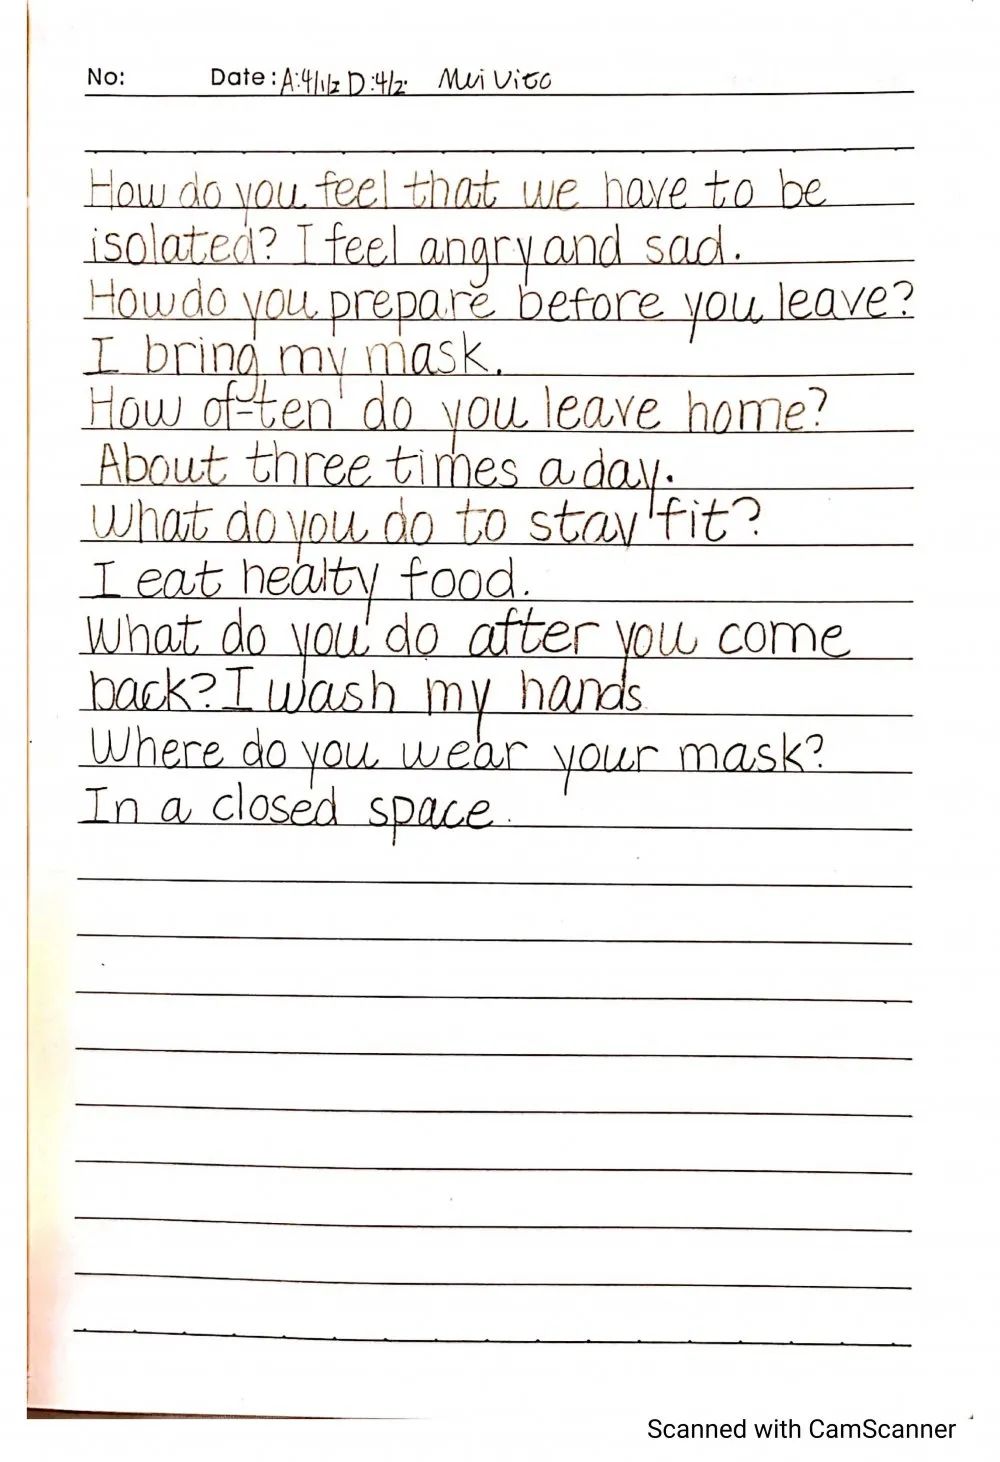 No: Date: A:4/1/2 D:4/2. Mui Vito
How do you feel that we have to be
isolated? I feel angry and sad.
How do you prepare before you leave?
I bring my mask.
How often do you leave home?
About three times a day.
What do you do to stay fit?
I eat healty food.
What do you do after you come
back? I wash my hands
Where do you wear your mask?
In a closed space.
Scanned with CamScanner